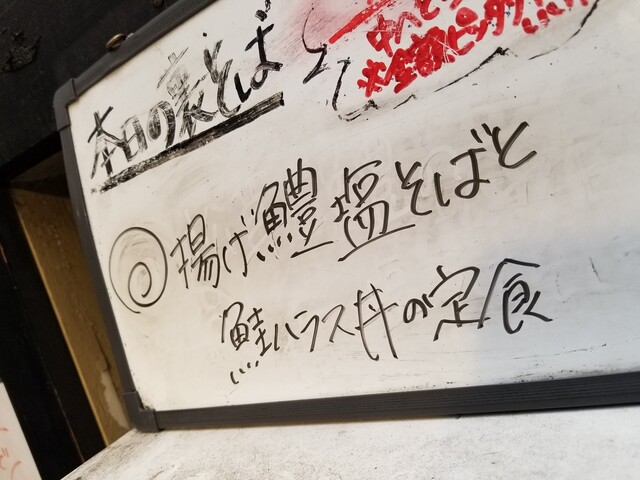 本日の裏そば
※全額ピッタリ
揚げ鱧塩そばと
鮭ハラス丼の定食